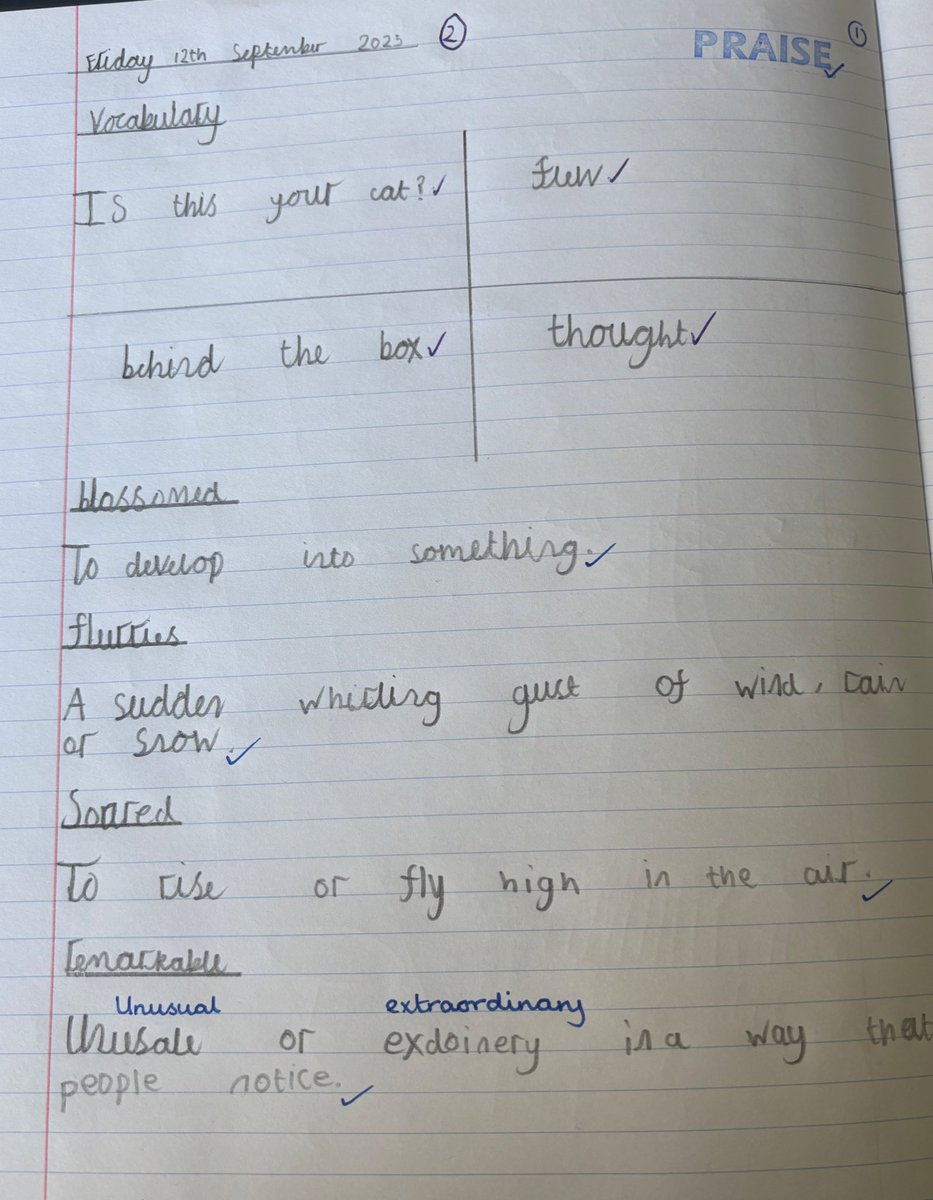 Friday 12th September 2025 ②
PRAISE ①
Vocabulary
Is this your cat?
behind the box
thought
blossomed
To develop into something.
flurries
A sudden whirling gust of wind, rain
or snow.
Soared
To rise or fly high in the air.
remarkable
Unusual extraordinary
Unusale or exdoinery in a way that
people notice.